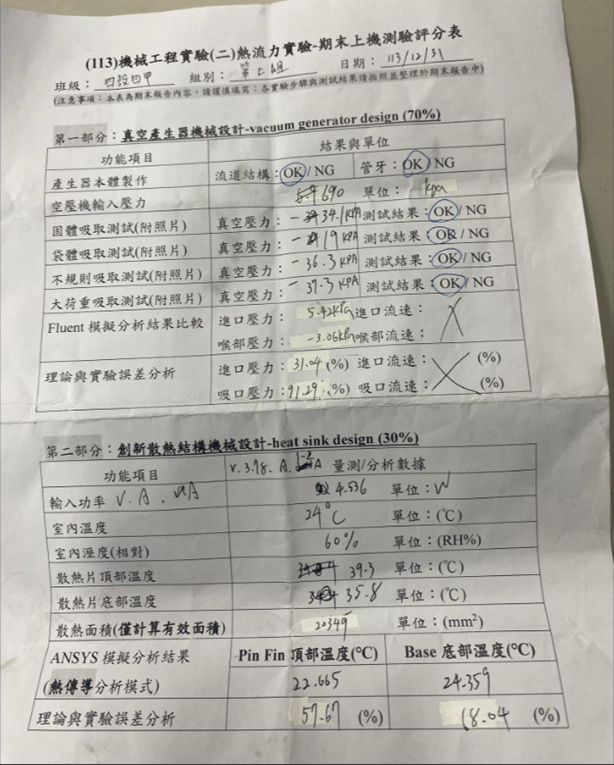 (113)機械工程實驗(二)熱流力實驗-期末上機測驗評分表
班級：四設四甲 組別：第七組 日期：113/12/31
(注意事項：本表為期末報告內容，請謹慎填寫；各實驗步驟與測試結果請拍照並整理於期末報告中)
第一部分：真空產生器機械設計-vacuum generator design (70%)
功能項目 結果與單位
產生器本體製作 流道結構：OK/ NG 管牙：OK/ NG
空壓機輸入壓力 690 單位： kpa
固體吸取測試(附照片) 真空壓力：-34.1KPA 測試結果：OK/ NG
袋體吸取測試(附照片) 真空壓力：-19 KPA 測試結果：OK/ NG
不規則吸取測試(附照片) 真空壓力：-36.3 KPA 測試結果：OK/ NG
大荷重吸取測試(附照片) 真空壓力：-37.3 KPA 測試結果：OK/ NG
Fluent 模擬分析結果比較 進口壓力： 5.42kPa 進口流速：
喉部壓力： -3.06kPa 喉部流速：
理論與實驗誤差分析 進口壓力：31.04 (%) 進口流速： (%)
吸口壓力：91.29 (%) 吸口流速： (%)
第二部分：創新散熱結構機械設計-heat sink design (30%)
功能項目 量測/分析數據
輸入功率 V.A. 4.536 單位：W
室內溫度 24°C 單位：(℃)
室內溼度(相對) 60% 單位：(RH%)
散熱片頂部溫度 39.3 單位：(℃)
散熱片底部溫度 35.8 單位：(℃)
散熱面積(僅計算有效面積) 20349 單位：(mm²)
ANSYS 模擬分析結果 Pin Fin 頂部溫度(℃) Base 底部溫度(℃)
(熱傳導分析模式) 22.665 24.359
理論與實驗誤差分析 57.67 (%) 18.04 (%)